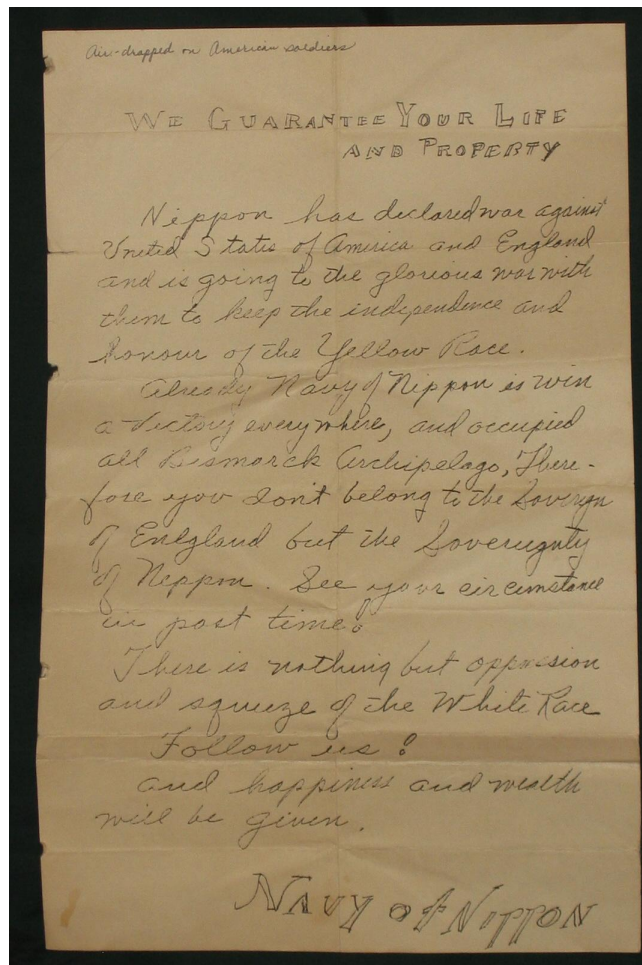 Air-dropped on American soldiers
WE GUARANTEE YOUR LIFE
AND PROPERTY
Nippon has declared war against
United States of America and England
and is going to the glorious war with
them to keep the independence and
honour of the Yellow Race.
Already Navy of Nippon is win
a victory everywhere, and occupied
all Bismarck Archipelago, There-
fore you don't belong to the
of England but the Sovereignty
of Nippon. See your circumstance
in past time!
There is nothing but
and squeeze of the White Race
Follow us!
and happiness and wealth
will be given.
NAVY of NIPPON